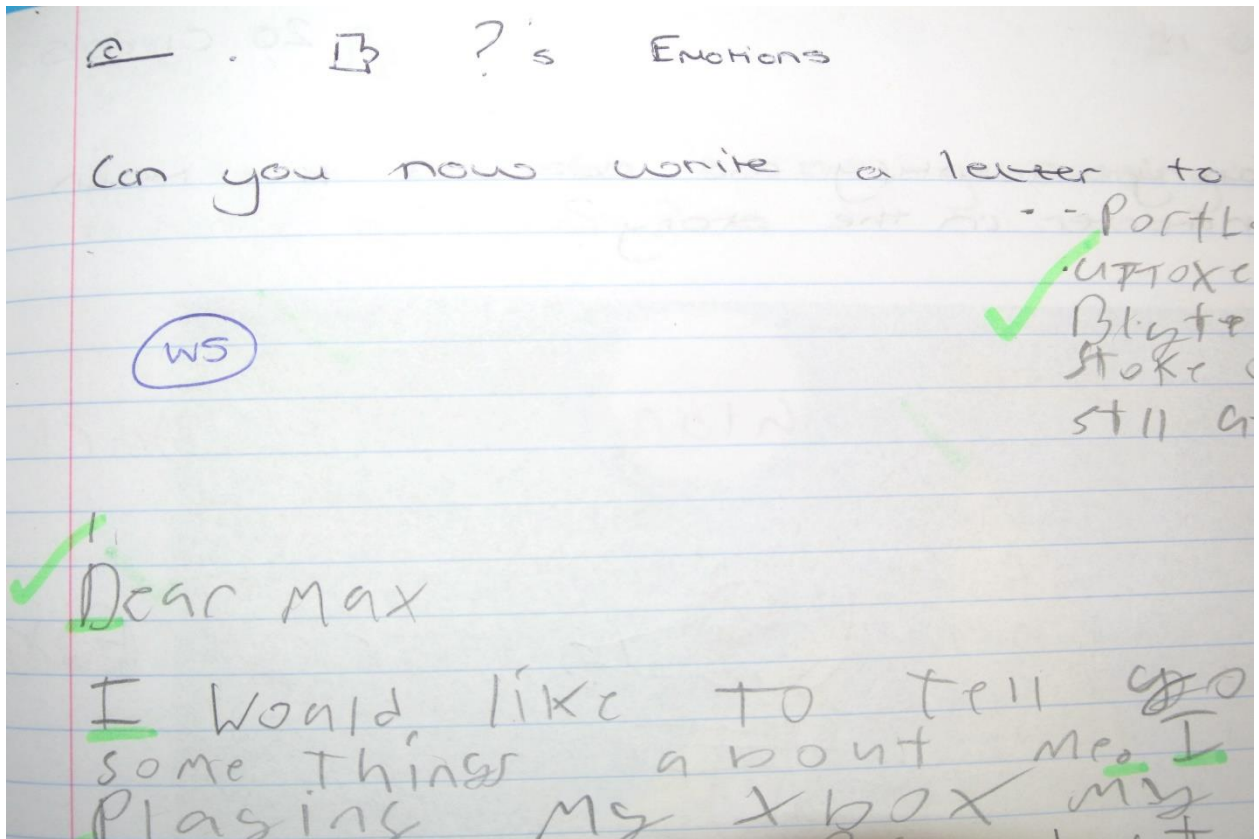 ?'s Emotions
Can you now write a letter to
PortL
uttoxe
Blyte
Stoke
still a
WS
Dear Max
I Would like To Tell yo
some Things about Me. I
Playing My Xbox My